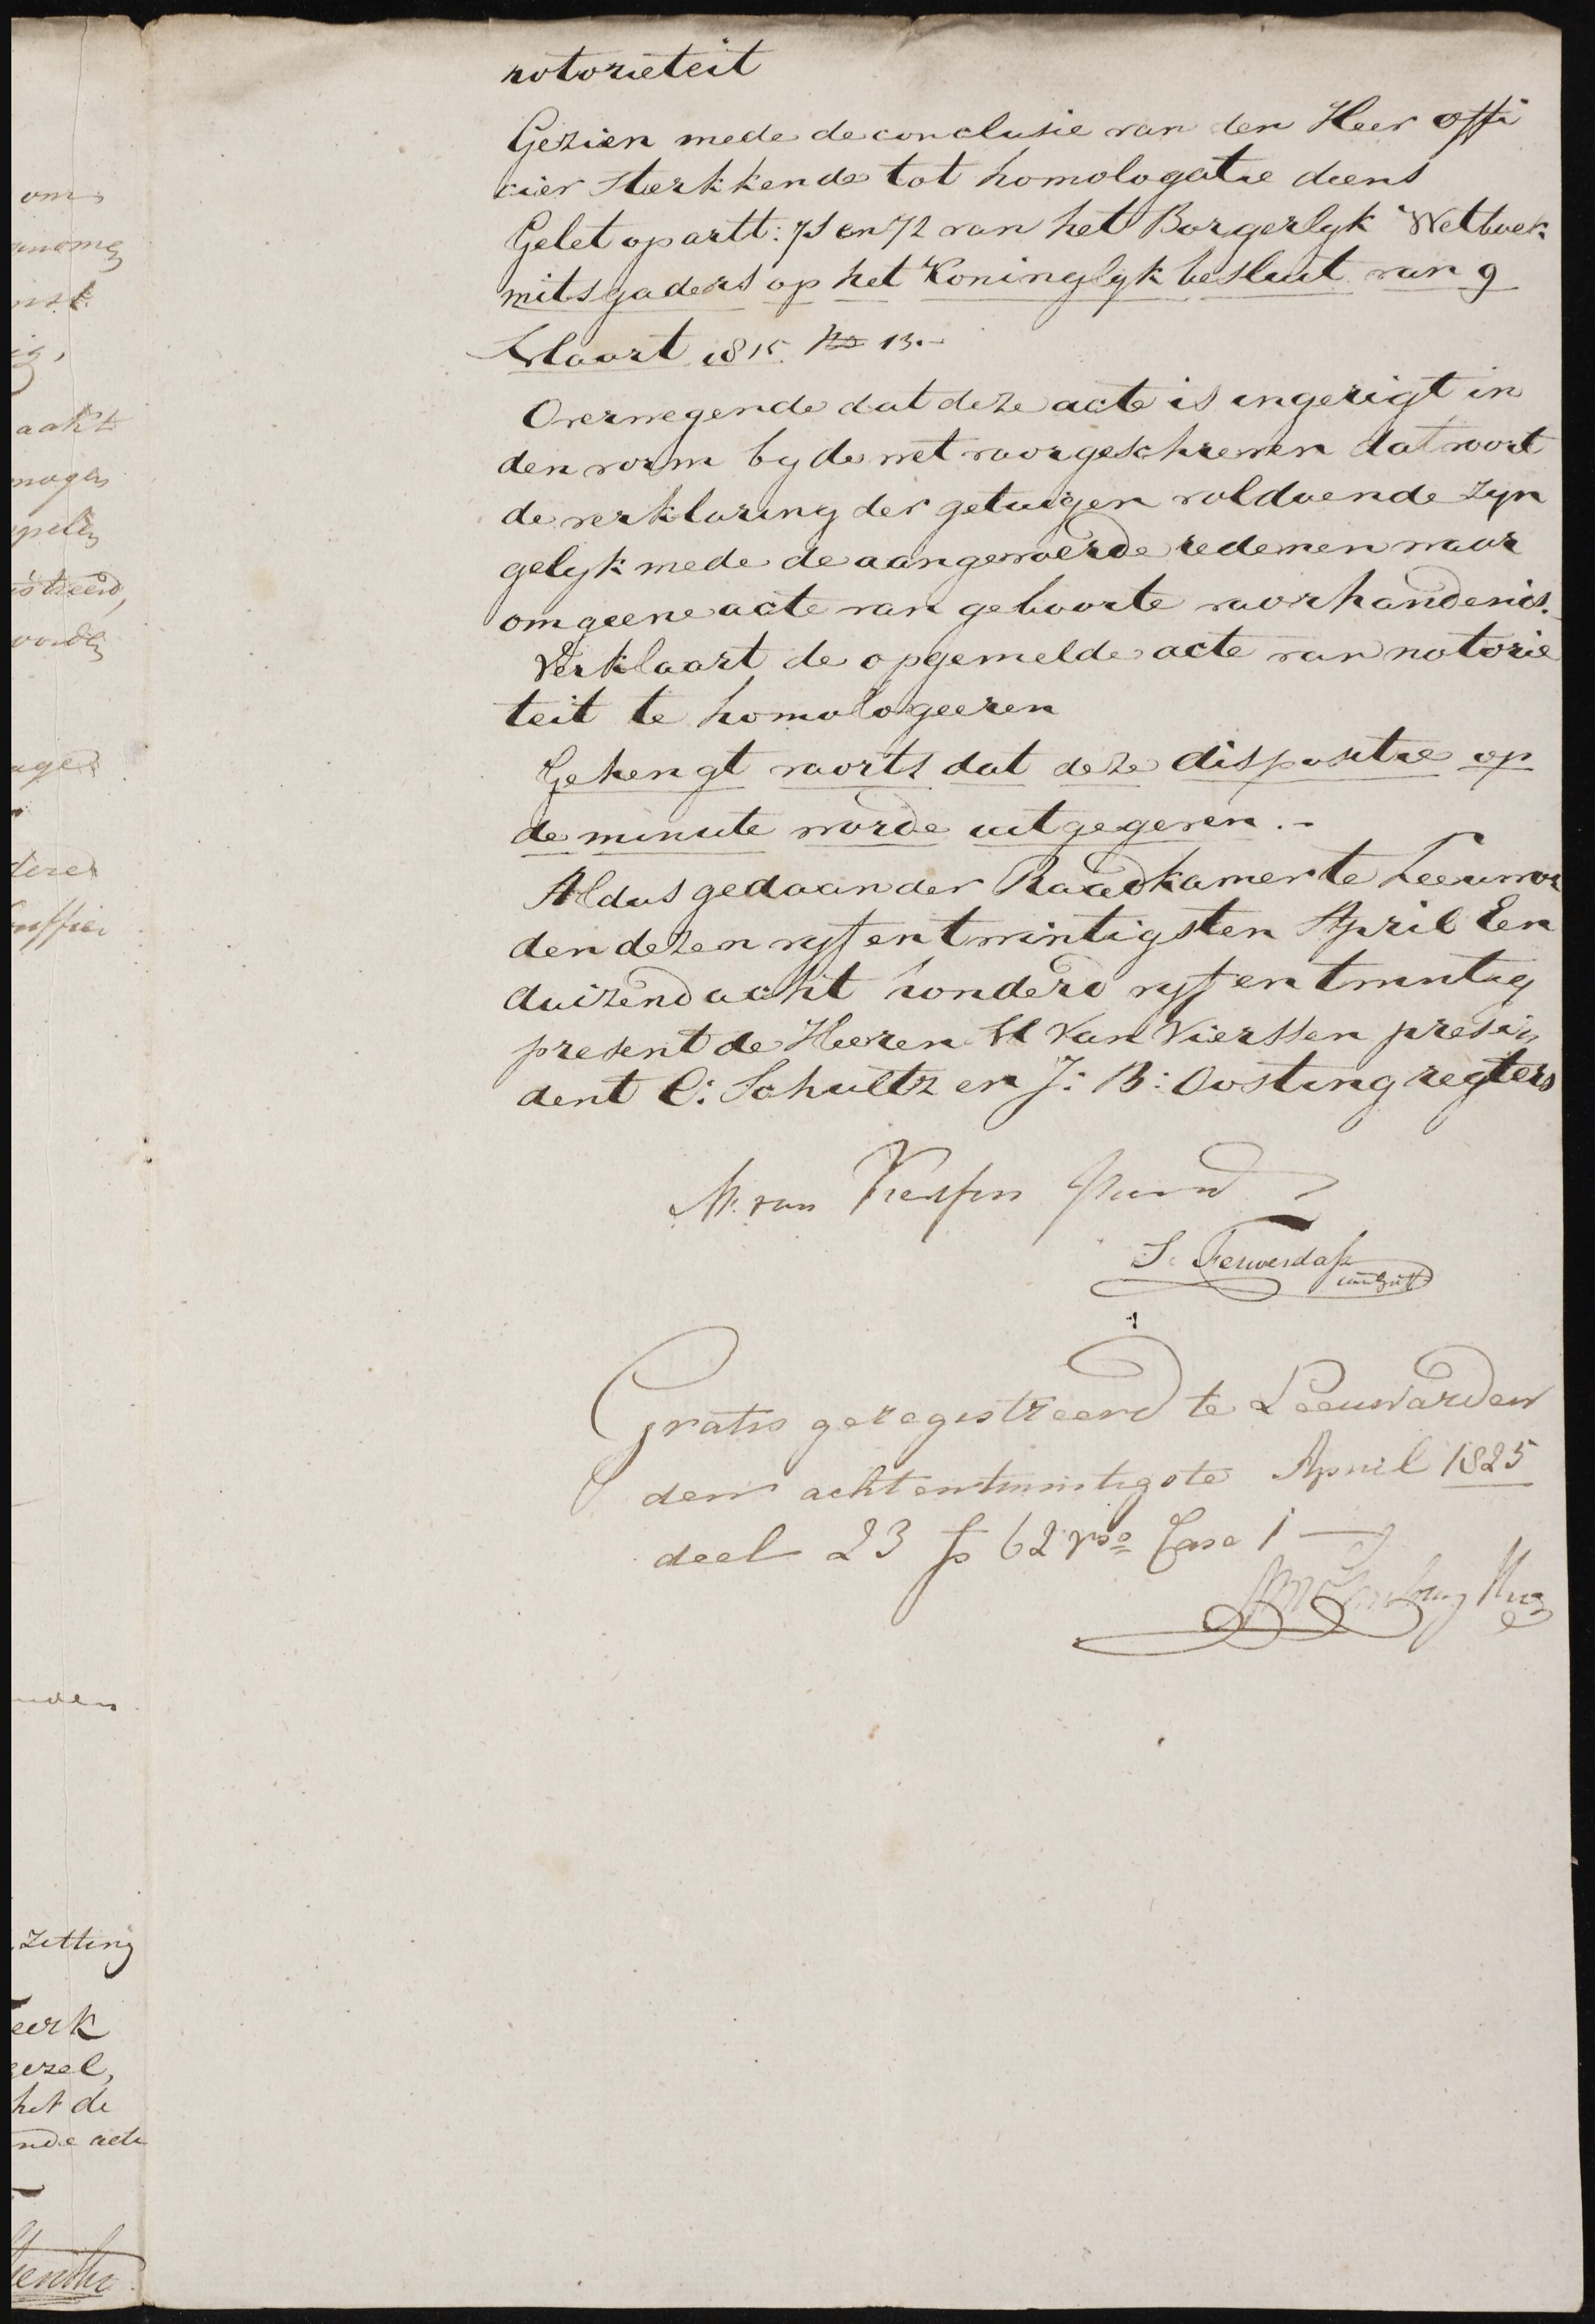 notorieteit
Gezien mede de conclusie van den Heer offi
cier sterkkende tot homologatie diens
Gelet op artt: 71 en 72 van het Borgerlyk Wetboek
mitsgaders op het Koninglyk besluit van 9
Maart 1815 No 13.-
Overwegende dat deze acte is ingerigt in
den vorm by de wet voorgeschreven dat voort
de verklaring der getuigen voldoende zyn
gelyk mede de aangevoerde redenen waar
om geene acte van geboorte voorhanden is.
Verklaart de opgemelde acte van notorie
teit te homologeeren
Gehengt voorts dat deze dispositie op
de minute worde uitgegeven.-
Aldus gedaan der Raadkamer te Leeuwar
den dezen vyf en twintigsten April Een
duizend acht honderd vyf en twintig
present de Heeren W Van Vierssen presi
dent C: Schultz en J: B: Oosting regters
W. van Vierssen
S. Ferwerda
Gratis geregistreerd te Leeuwarden
den achtentwintigste April 1825
deel 23 fo 62 vso Case 1
om
aakt
mogen
istreerd,
zitting
eerk
gezel,
het de
nde acte